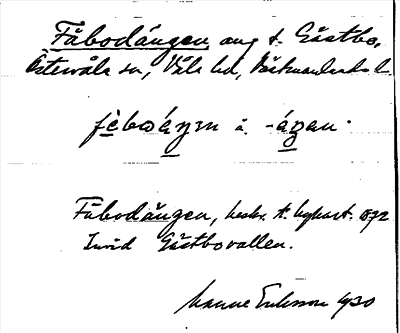 Fäbodängen äng t. Gästbo,
Östervåla sn, Våla hd, Västmanlands l.
fèbωáŋen å. -áŋan.
Fäbodängen, beskr. t. hykart. 1872
Invid Gästbovallen.
Manne Eriksson 1930